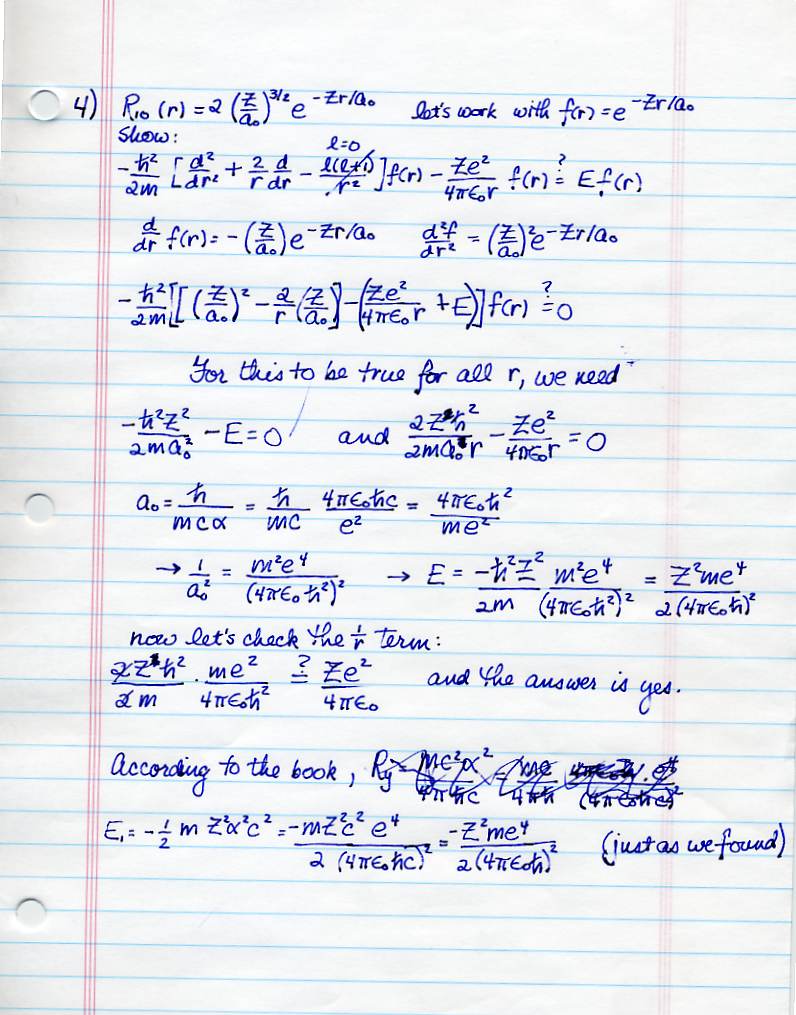 4) R₁₀(r) = 2 (Z/a₀)^3/2 e^-Zr/a₀ let's work with f(r) = e^-Zr/a₀
Show:
l=0
-ħ²/2m [d²/dr² + 2/r d/dr - l(l+1)/r²] f(r) - Ze²/4πε₀r f(r) ?= E f(r)
d/dr f(r) = -(Z/a₀) e^-Zr/a₀ d²f/dr² = (Z/a₀)² e^-Zr/a₀
-ħ²/2m [[(Z/a₀)² - 2/r (Z/a₀)] - (Ze²/4πε₀r + E)] f(r) ?= 0
For this to be true for all r, we need
-ħ²Z²/2ma₀² - E = 0 and 2Zħ²/2ma₀r - Ze²/4πε₀r = 0
a₀ = ħ/mcα = ħ/mc 4πε₀ħc/e² = 4πε₀ħ²/me²
→ 1/a₀² = m²e⁴/(4πε₀ħ²)² → E = -ħ²Z²/2m m²e⁴/(4πε₀ħ²)² = Z²me⁴/2(4πε₀ħ)²
now let's check the 1/r term:
2Zħ²/2m · me²/4πε₀ħ² ?= Ze²/4πε₀ and the answer is yes.
According to the book,
E₁ = -1/2 m Z²α²c² = -mZ²c² e⁴/2 (4πε₀ħc)² = -Z²me⁴/2(4πε₀ħ)² (just as we found)